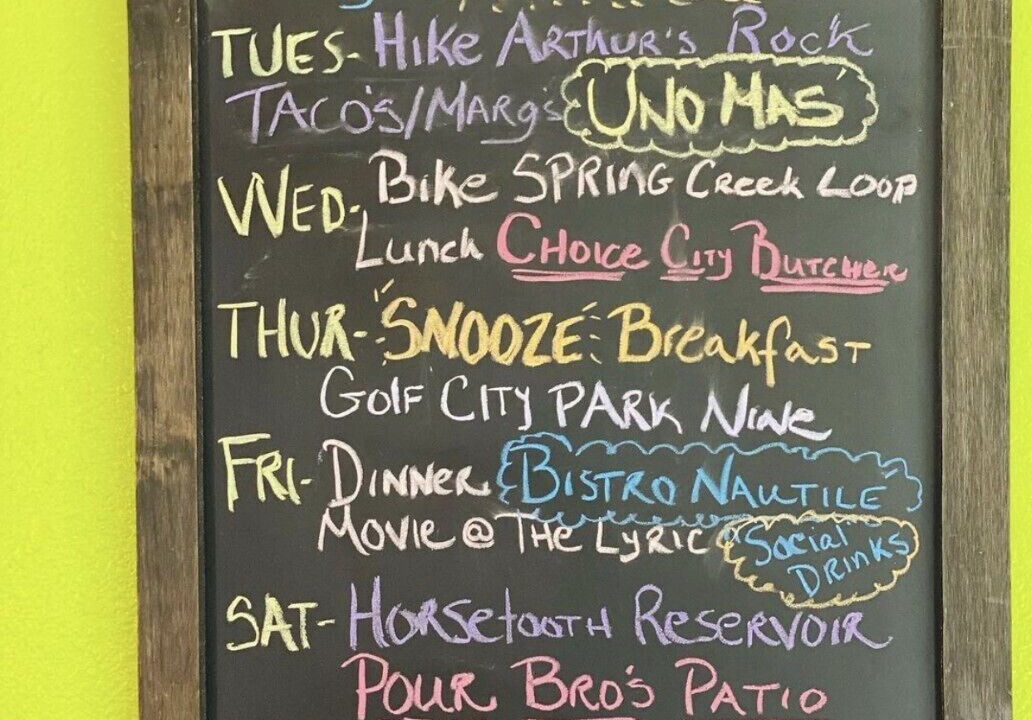 TUES- HIKE ARTHUR'S ROCK
TACO'S/MARG'S UNO MAS
WED- BIKE SPRING CREEK LOOP
LUNCH CHOICE CITY BUTCHER
THUR- SNOOZE BREAKFAST
GOLF CITY PARK NINE
FRI- DINNER BISTRO NAUTILE
MOVIE @ THE LYRIC Social DRINKS
SAT- HORSETOOTH RESERVOIR
POUR BRO'S PATIO